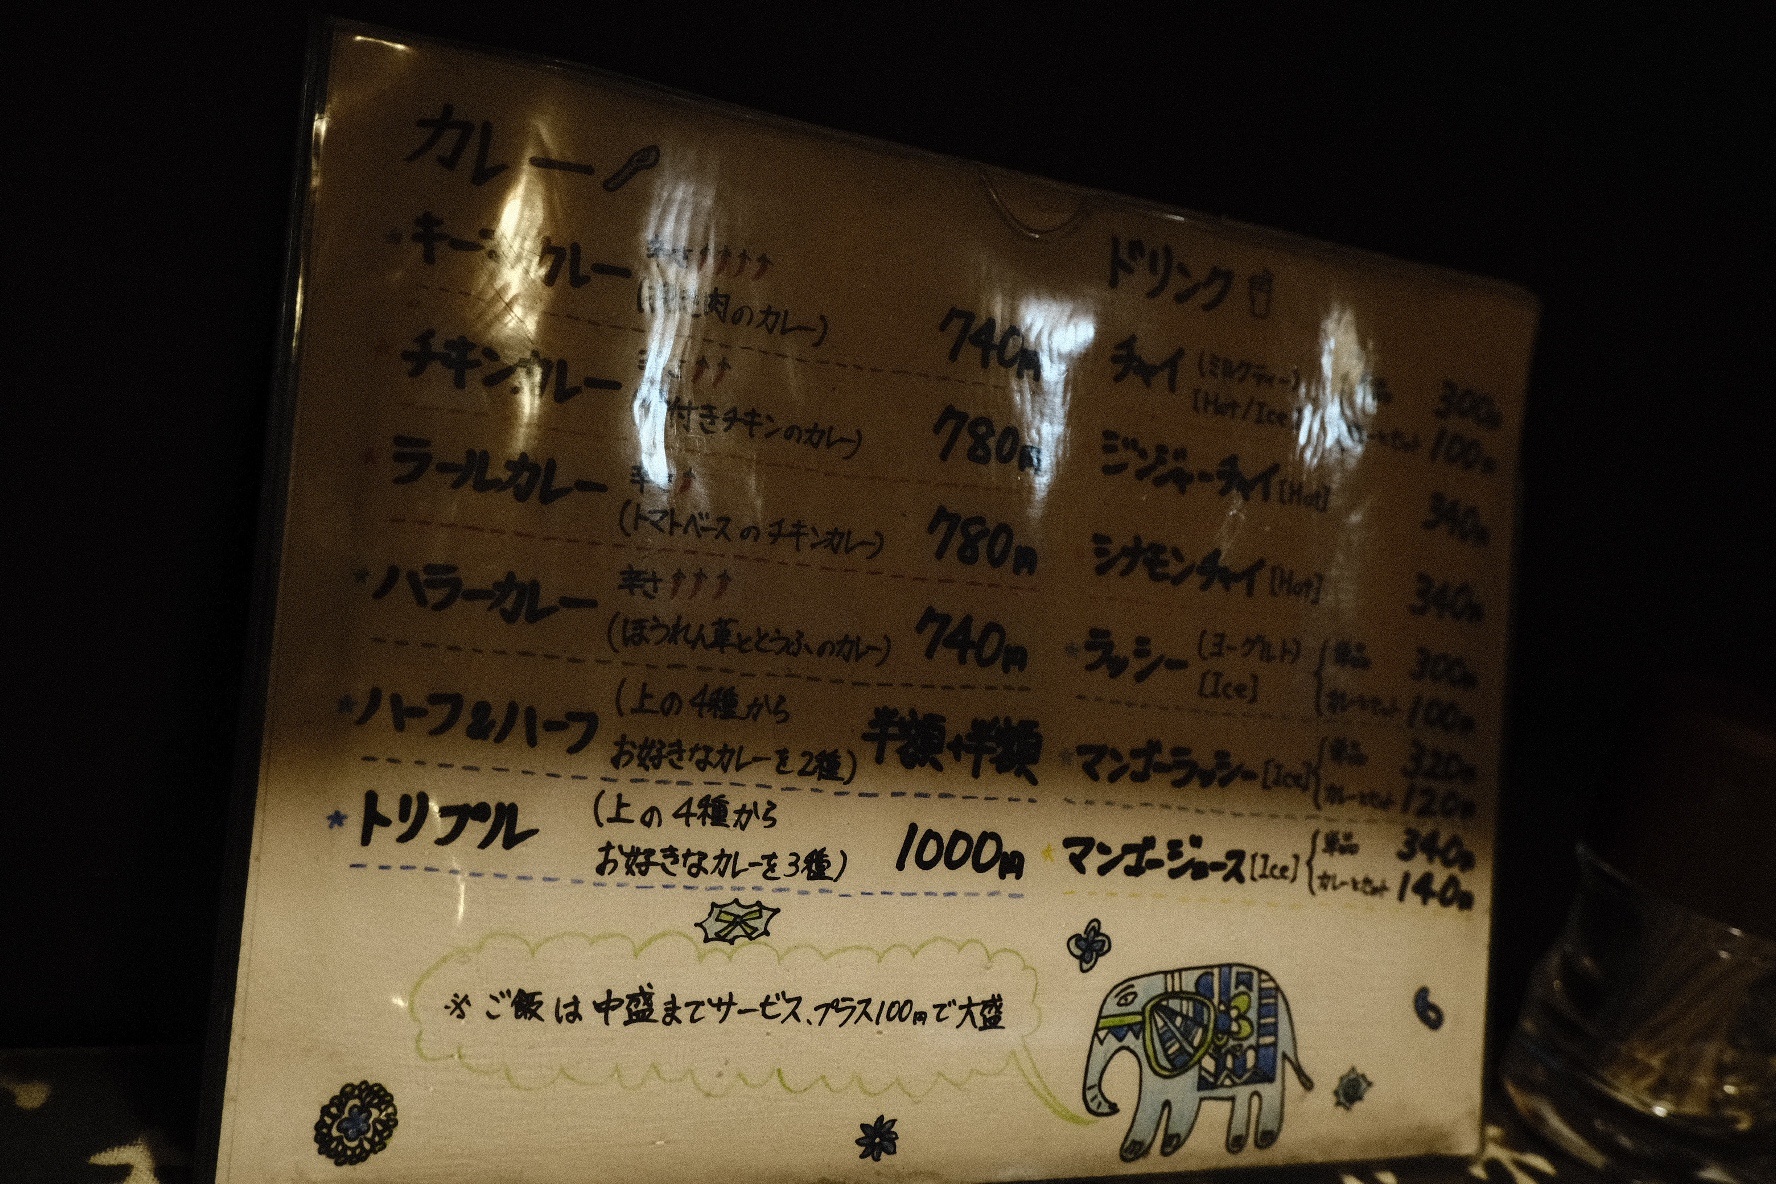 カレー
キーマカレー 辛さ
(挽き肉のカレー) 740円
チキンカレー 辛さ
付きチキンのカレー) 780円
ラールカレー 辛さ
(トマトベースのチキンカレー) 780円
ハラーカレー 辛さ
(ほうれん草ととうふのカレー) 740円
ハーフ&ハーフ (上の4種から
お好きなカレーを2種) 半額+半額
トリプル (上の4種から
お好きなカレーを3種) 1000円
※ご飯は中盛までサービス、プラス100円で大盛
ドリンク
チャイ (ミルクティー) 単品 300円
[Hot/Ice] カレーとセット 100円
ジンジャーチャイ [Hot] 340円
シナモンチャイ [Hot] 340円
ラッシー (ヨーグルト) 単品 300円
[Ice] カレーとセット 100円
マンゴーラッシー [Ice] 単品 320円
カレーとセット 120円
マンゴージュース [Ice] 単品 340円
カレーとセット 140円